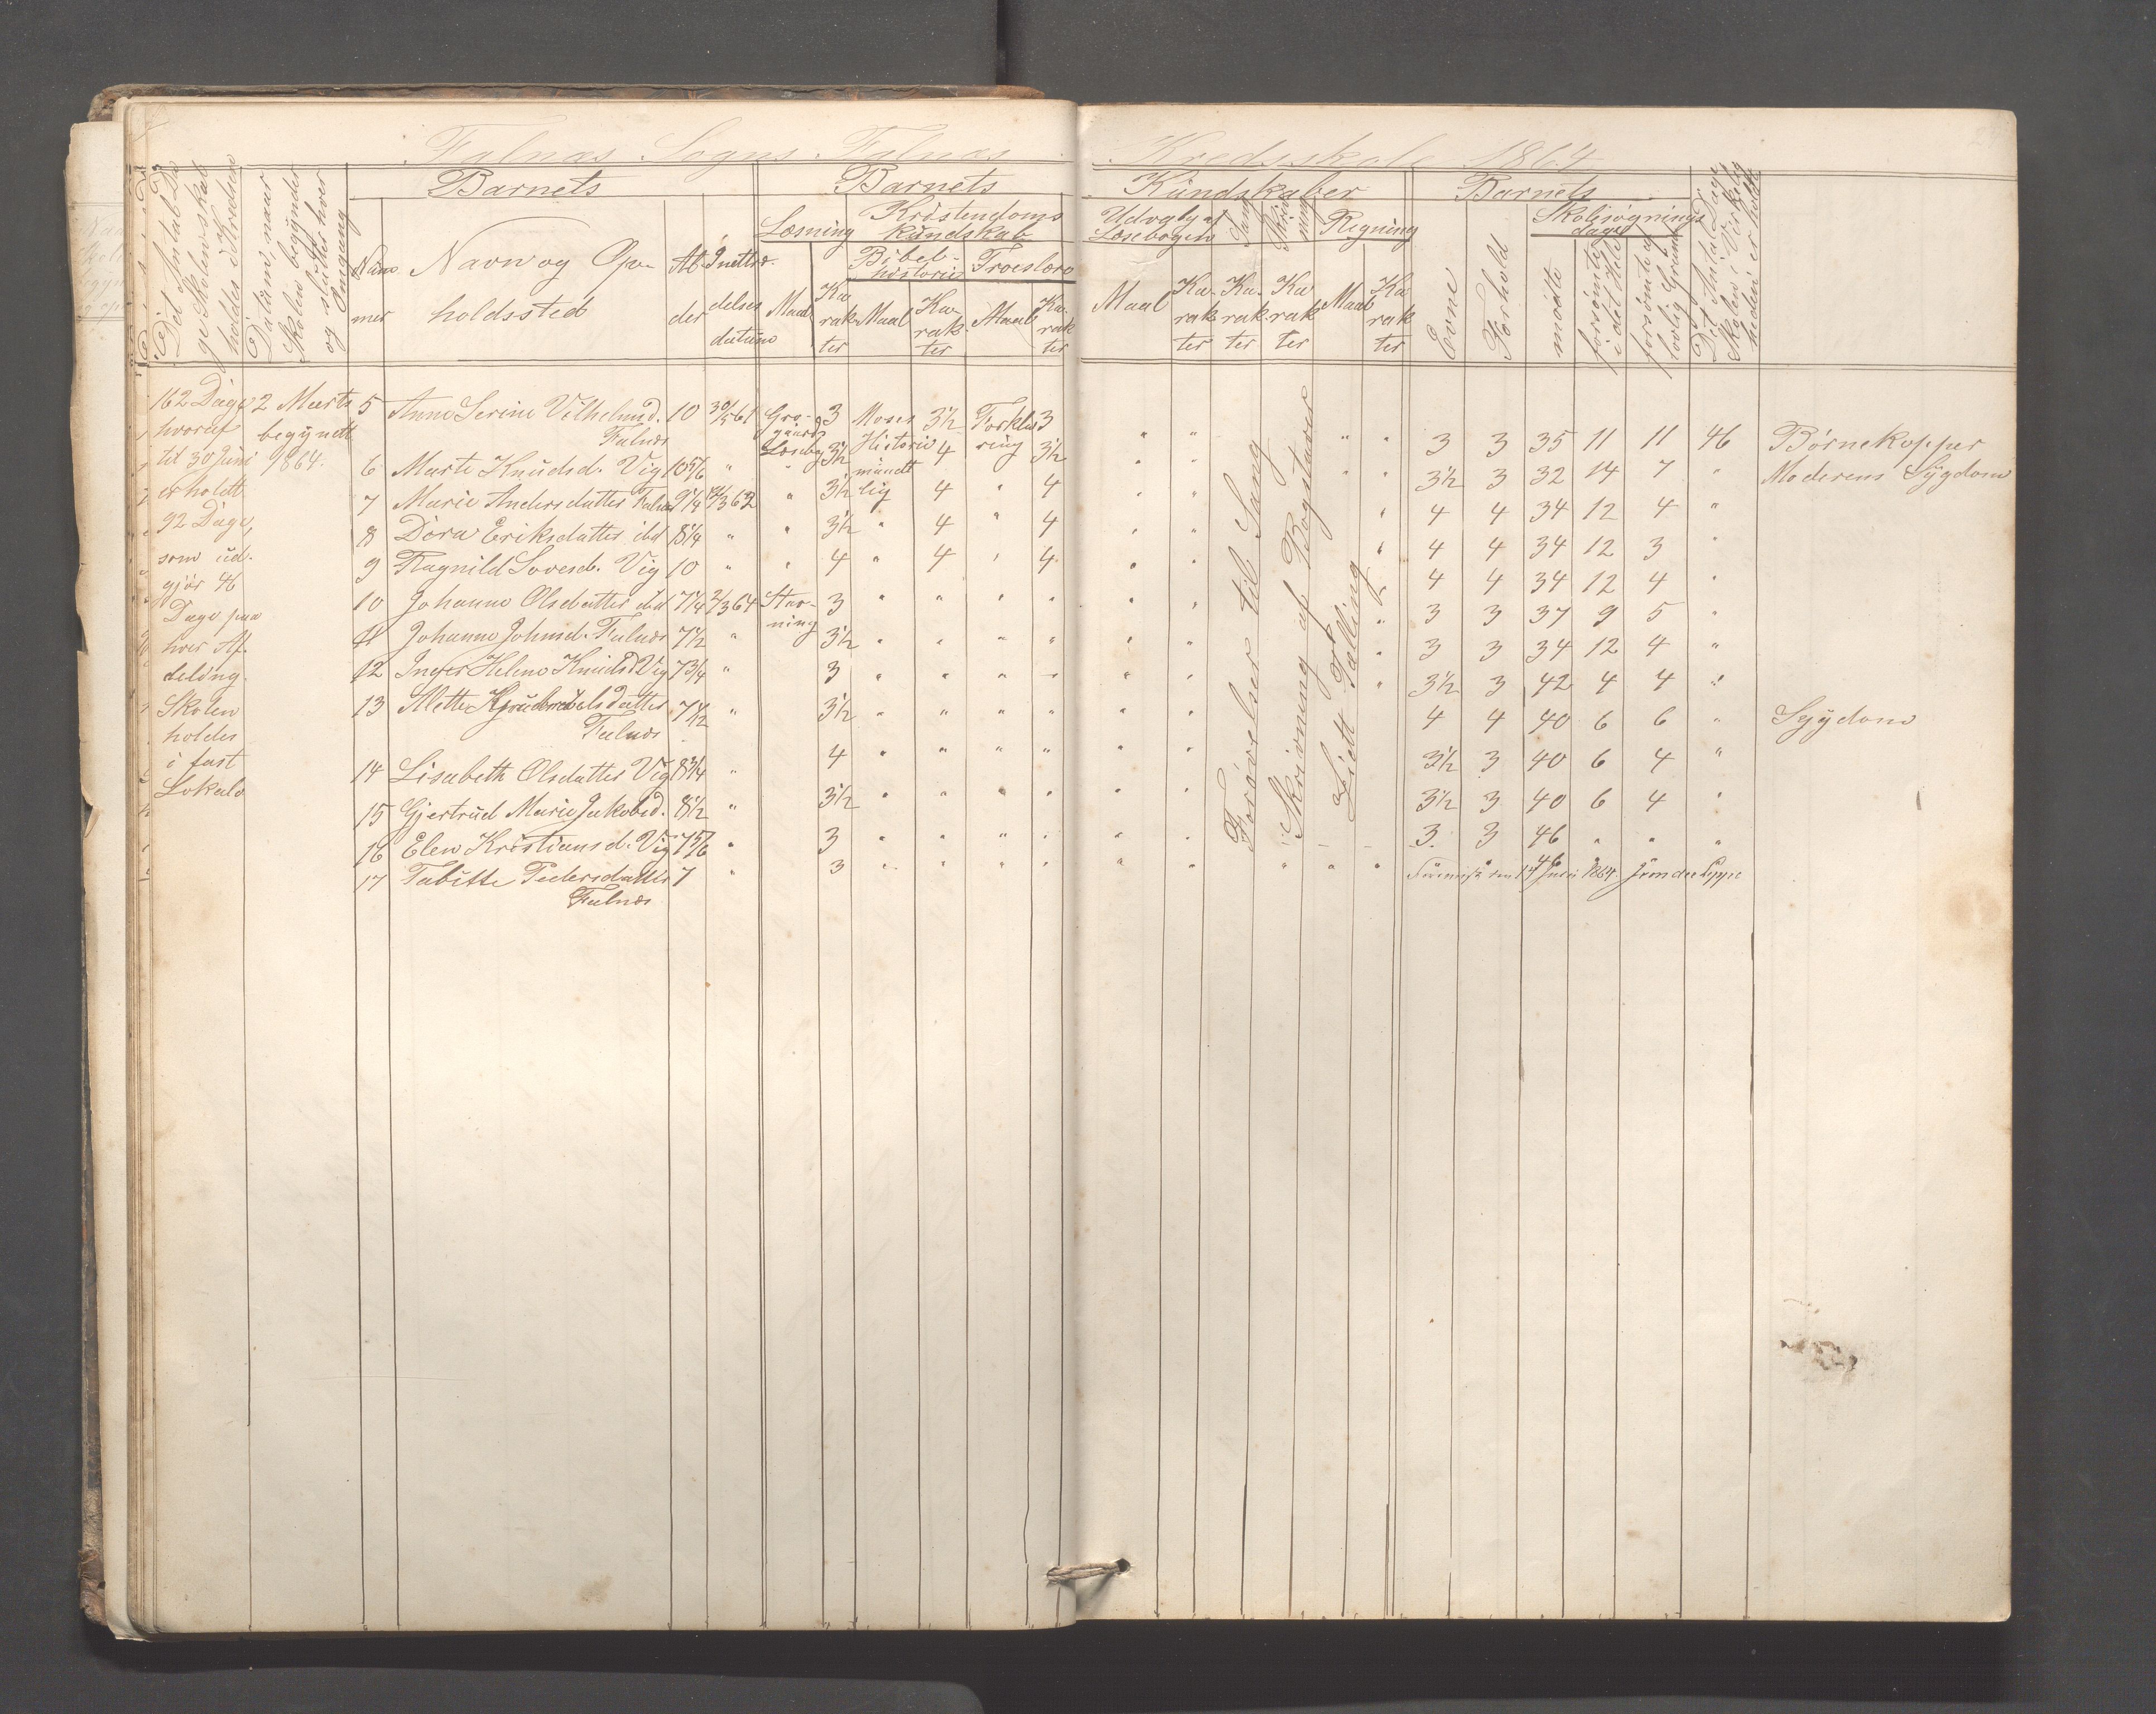 Falnæs Sogns Falnæs Kredsskole 1864
Det Antal Da
ge Skolen skal
holdes i Kredsen
Datum, naar
Skolen begynder
og slutter hver
Omgang
Barnets
Num
mer
Navn og Op-
holdssted
Al-
der
Indtræ-
delses
datum
Barnets
Læsning
Maal
Ka
rak
ter
Kristendoms
kundskab
Bibel-
historie
Maal
Ka-
rak
ter
Troeslære
Maal
Ka-
rak
ter
Kundskaber
Udvalg af
Læsebogen
Maal
Ka-
rak
ter
Sang
Ka-
rak
ter
Skriv
ning
Ka
rak
ter
Regning
Maal
Ka
rak
ter
Barnets
Evne
Forhold
Skolesøgnings
dage
mødte
forsømte
i det Hele
forsømte af
lovlig Grund
Det Antal Dage
Skolen i Virkelig
heden er holdt
162 Dage
hvoraf
til 30 Juni
er holdt
92 Dage,
som ud-
gjør 46
Dage paa
hver Af-
deling.
Skolen
holdes
i fast
Lokale
2 Marts
begyndt
1864.
5 Anne Serine Vilhelmsd. 10 30/5 61 Gro- 3 Moses 3½ Forkla 3 " " " " 3 3 35 11 11 46 Børnekopper
Falnæs gaards Historie ring
6 Marte Knudsd. Vig 10 5/6 " Læsebog 3½ mundt 4 3½ " " " " 3½ 3 32 14 7 " Moderens Sygdom
7 Marie Andersdatter Falnæs 9 1/4 3 62 " 3½ lig 4 " 4 " " " 4 4 34 12 4 "
8 Dora Eriksdatter ibd 8 1/4 " " 3½ " 4 " 4 " " " 4 4 34 12 3 "
9 Ragnild Sovesd. Vig 10 " " 4 " 4 " 4 " " " 4 4 34 12 4 "
10 Johanne Olsdatter ibd 7 1/4 2/3 64 Stav- 3 " " " " " " " 3 3 37 9 5 "
ning
11 Johanne Johnsd. Falnæs 7½ " 3½ " " " " " " " 3 3 34 12 4 "
12 Inger Helene Knudsd Vig 7 3/4 " 3 " " " " " " " 3½ 3 42 4 4 "
13 Mette datter 7 " 3½ " " " " " " 4 4 40 6 6 " Sygdom
Falnæs
14 Lisabeth Olsdatter Vig 8 3/4 " 4 " " " " " " 3½ 3 40 6 4 "
15 Gjertrud Marie Jakobsd. 8½ " 3½ " " " " " " 3½ 3 40 6 4 "
16 Elen Kristiansd. Vig 7 5/6 " 3 " " " " " " 3 3 46 " " "
17 Tabitte Pedersdatter 7 " 3 " " " " " " " " "
Falnæs
Forøvelser til Sang
Skrivning af Bogstaver
Lidt Tælling